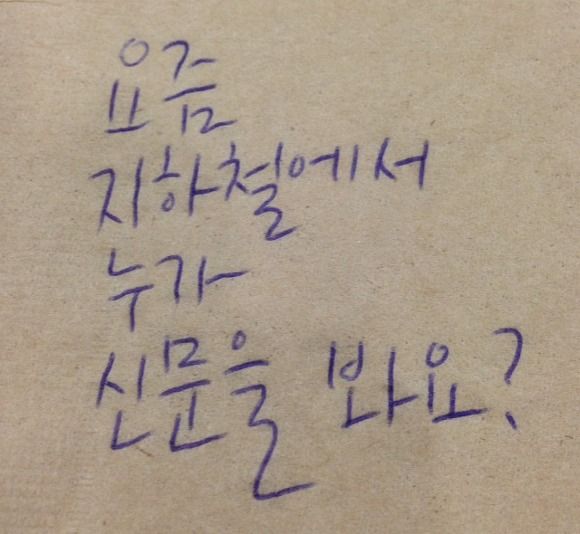 요즘
지하철에서
누가
신문을 봐요?